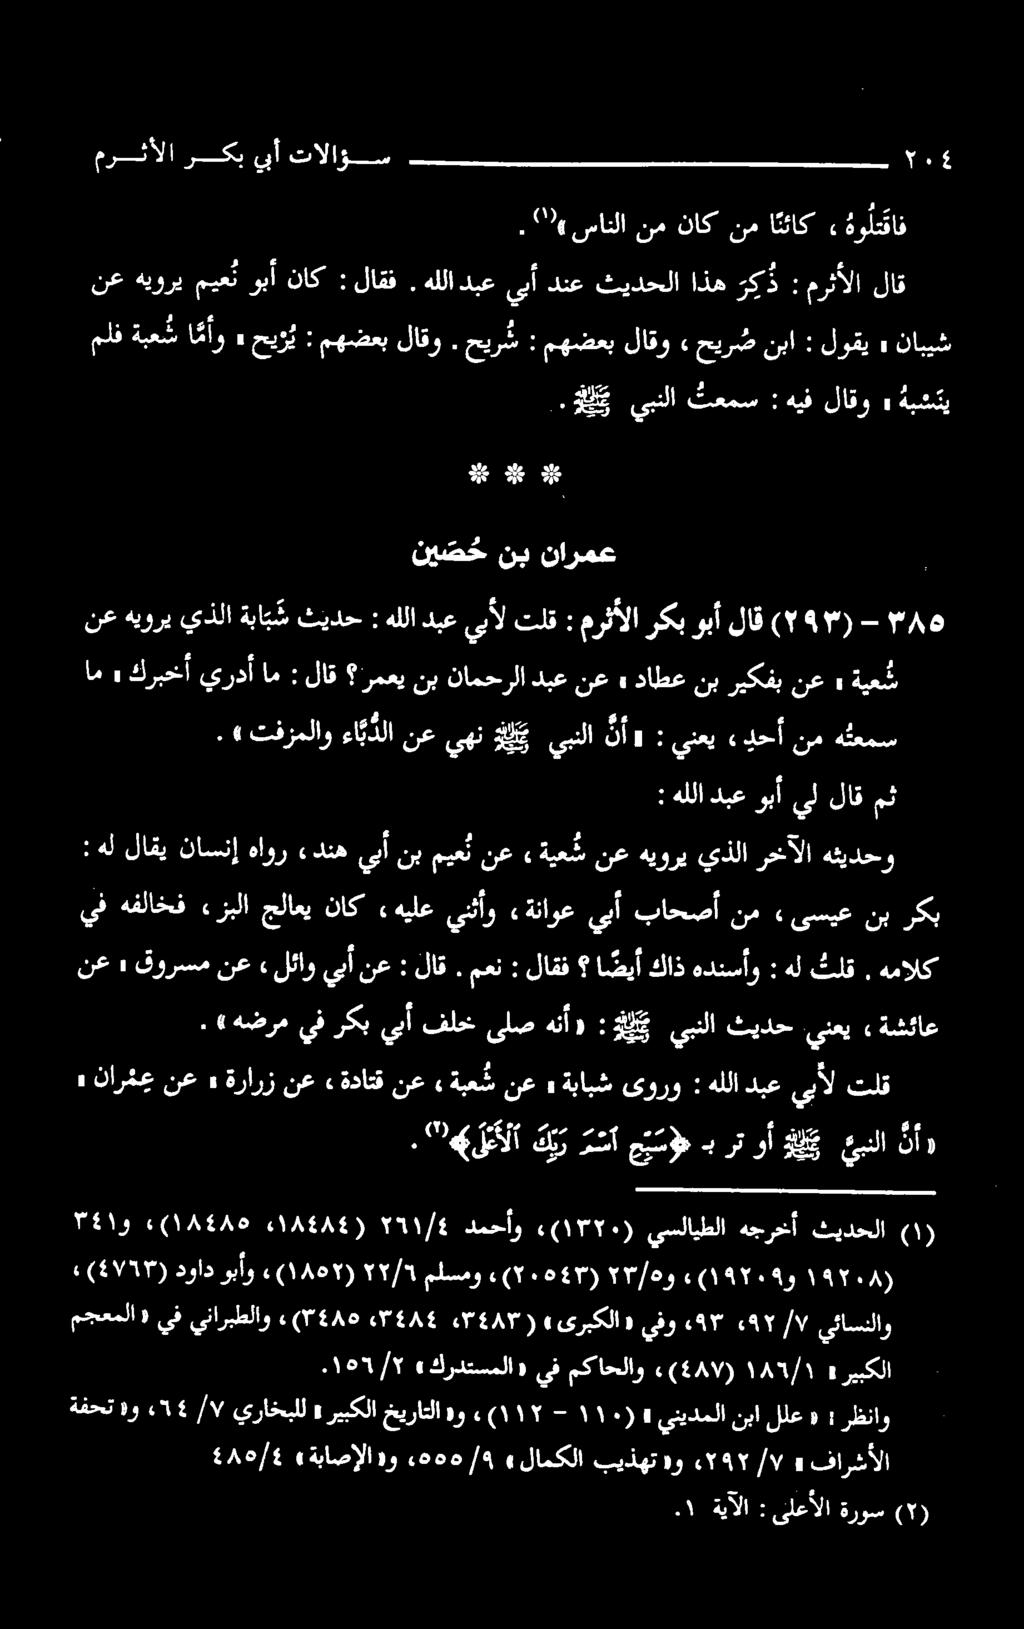 ٢٠٤ ــــــــ سـؤالات أبي بكـر الأثـرم
فاقَتلُوهُ ، كائنًا من كان من الناس»(١) .
قال الأثرم : ذُكِرَ هذا الحديث عند أبي عبد الله . فقال : كان أبو نُعيم يرويه عن
شيبان ، يقول : ابن صُريح ، وقال بعضهم : شُريح . وقال بعضهم : يُزيح ، وأمَّا شُعبة فلم
ينَسْبهُ ، وقال فيه : سمعتُ النبي ﷺ .
* * *
عمران بن حُصَين
٣٨٥ – (٢٩٣) قال أبو بكر الأثرم : قلت لأبي عبد الله : حديث شَبَابة الذي يرويه عن
شُعبة ، عن بكير بن عطاء ، عن عبد الرحمان بن يعمر؟ قال : ما أدري أخبرك ، ما
سمعتُه من أحدٍ ، يعني : « أنَّ النبي ﷺ نهي عن الدُّبَّاء والمزفت » .
ثم قال لي أبو عبد الله :
وحديثه الآخر الذي يرويه عن شُعبة ، عن نُعيم بن أبي هند ، رواه إنسان يقال له :
بكر بن عيسى ، من أصحاب أبي عوانة ، وأثنى عليه ، كان يعالج البز ، فخالفه في
كلامه . قلتُ له : وأسنده ذاك أيضًا ؟ فقال : نعم . قال : عن أبي وائل ، عن مسروق ، عن
عائشة ، يعني حديث النبي ﷺ : «أنه صلى خلف أبي بكر في مرضه » .
قلت لأبي عبد الله : وروى شبابة ، عن شُعبة ، عن قتادة ، عن زرارة ، عن عِمْران ،
« أنَّ النبيَّ ﷺ أو تر بـ ﴿سَبِّحِ ٱسْمَ رَبِّكَ ٱلْأَعْلَى﴾(٢) .
(١) الحديث أخرجه الطيالسي (١٣٢٠)، وأحمد ٤/ ٢٦١ (١٨٤٨٤، ١٨٤٨٥)، و٣٤١
(١٩٢٠٨ و١٩٢٠٩)، و٥/ ٢٣ (٢٠٥٤٣)، ومسلم ٦/ ٢٢ (١٨٥٢)، وأبو داود (٤٧٦٣)،
والنسائي ٧/ ٩٢، ٩٣، وفي «الكبرى» (٣٤٨٣، ٣٤٨٤، ٣٤٨٥)، والطبراني في « المعجم
الكبير » ١/ ١٨٦ (٤٨٧)، والحاكم في « المستدرك » ٢/ ١٥٦.
وانظر : « علل ابن المديني » (١١٠ – ١١٢)، و« التاريخ الكبير » للبخاري ٧/ ٦٤، و« تحفة
الأشراف » ٧/ ٢٩٢، و« تهذيب الكمال » ٩/ ٥٥٥، و« الإصابة » ٤/ ٤٨٥
(٢) سورة الأعلى : الآية ١.